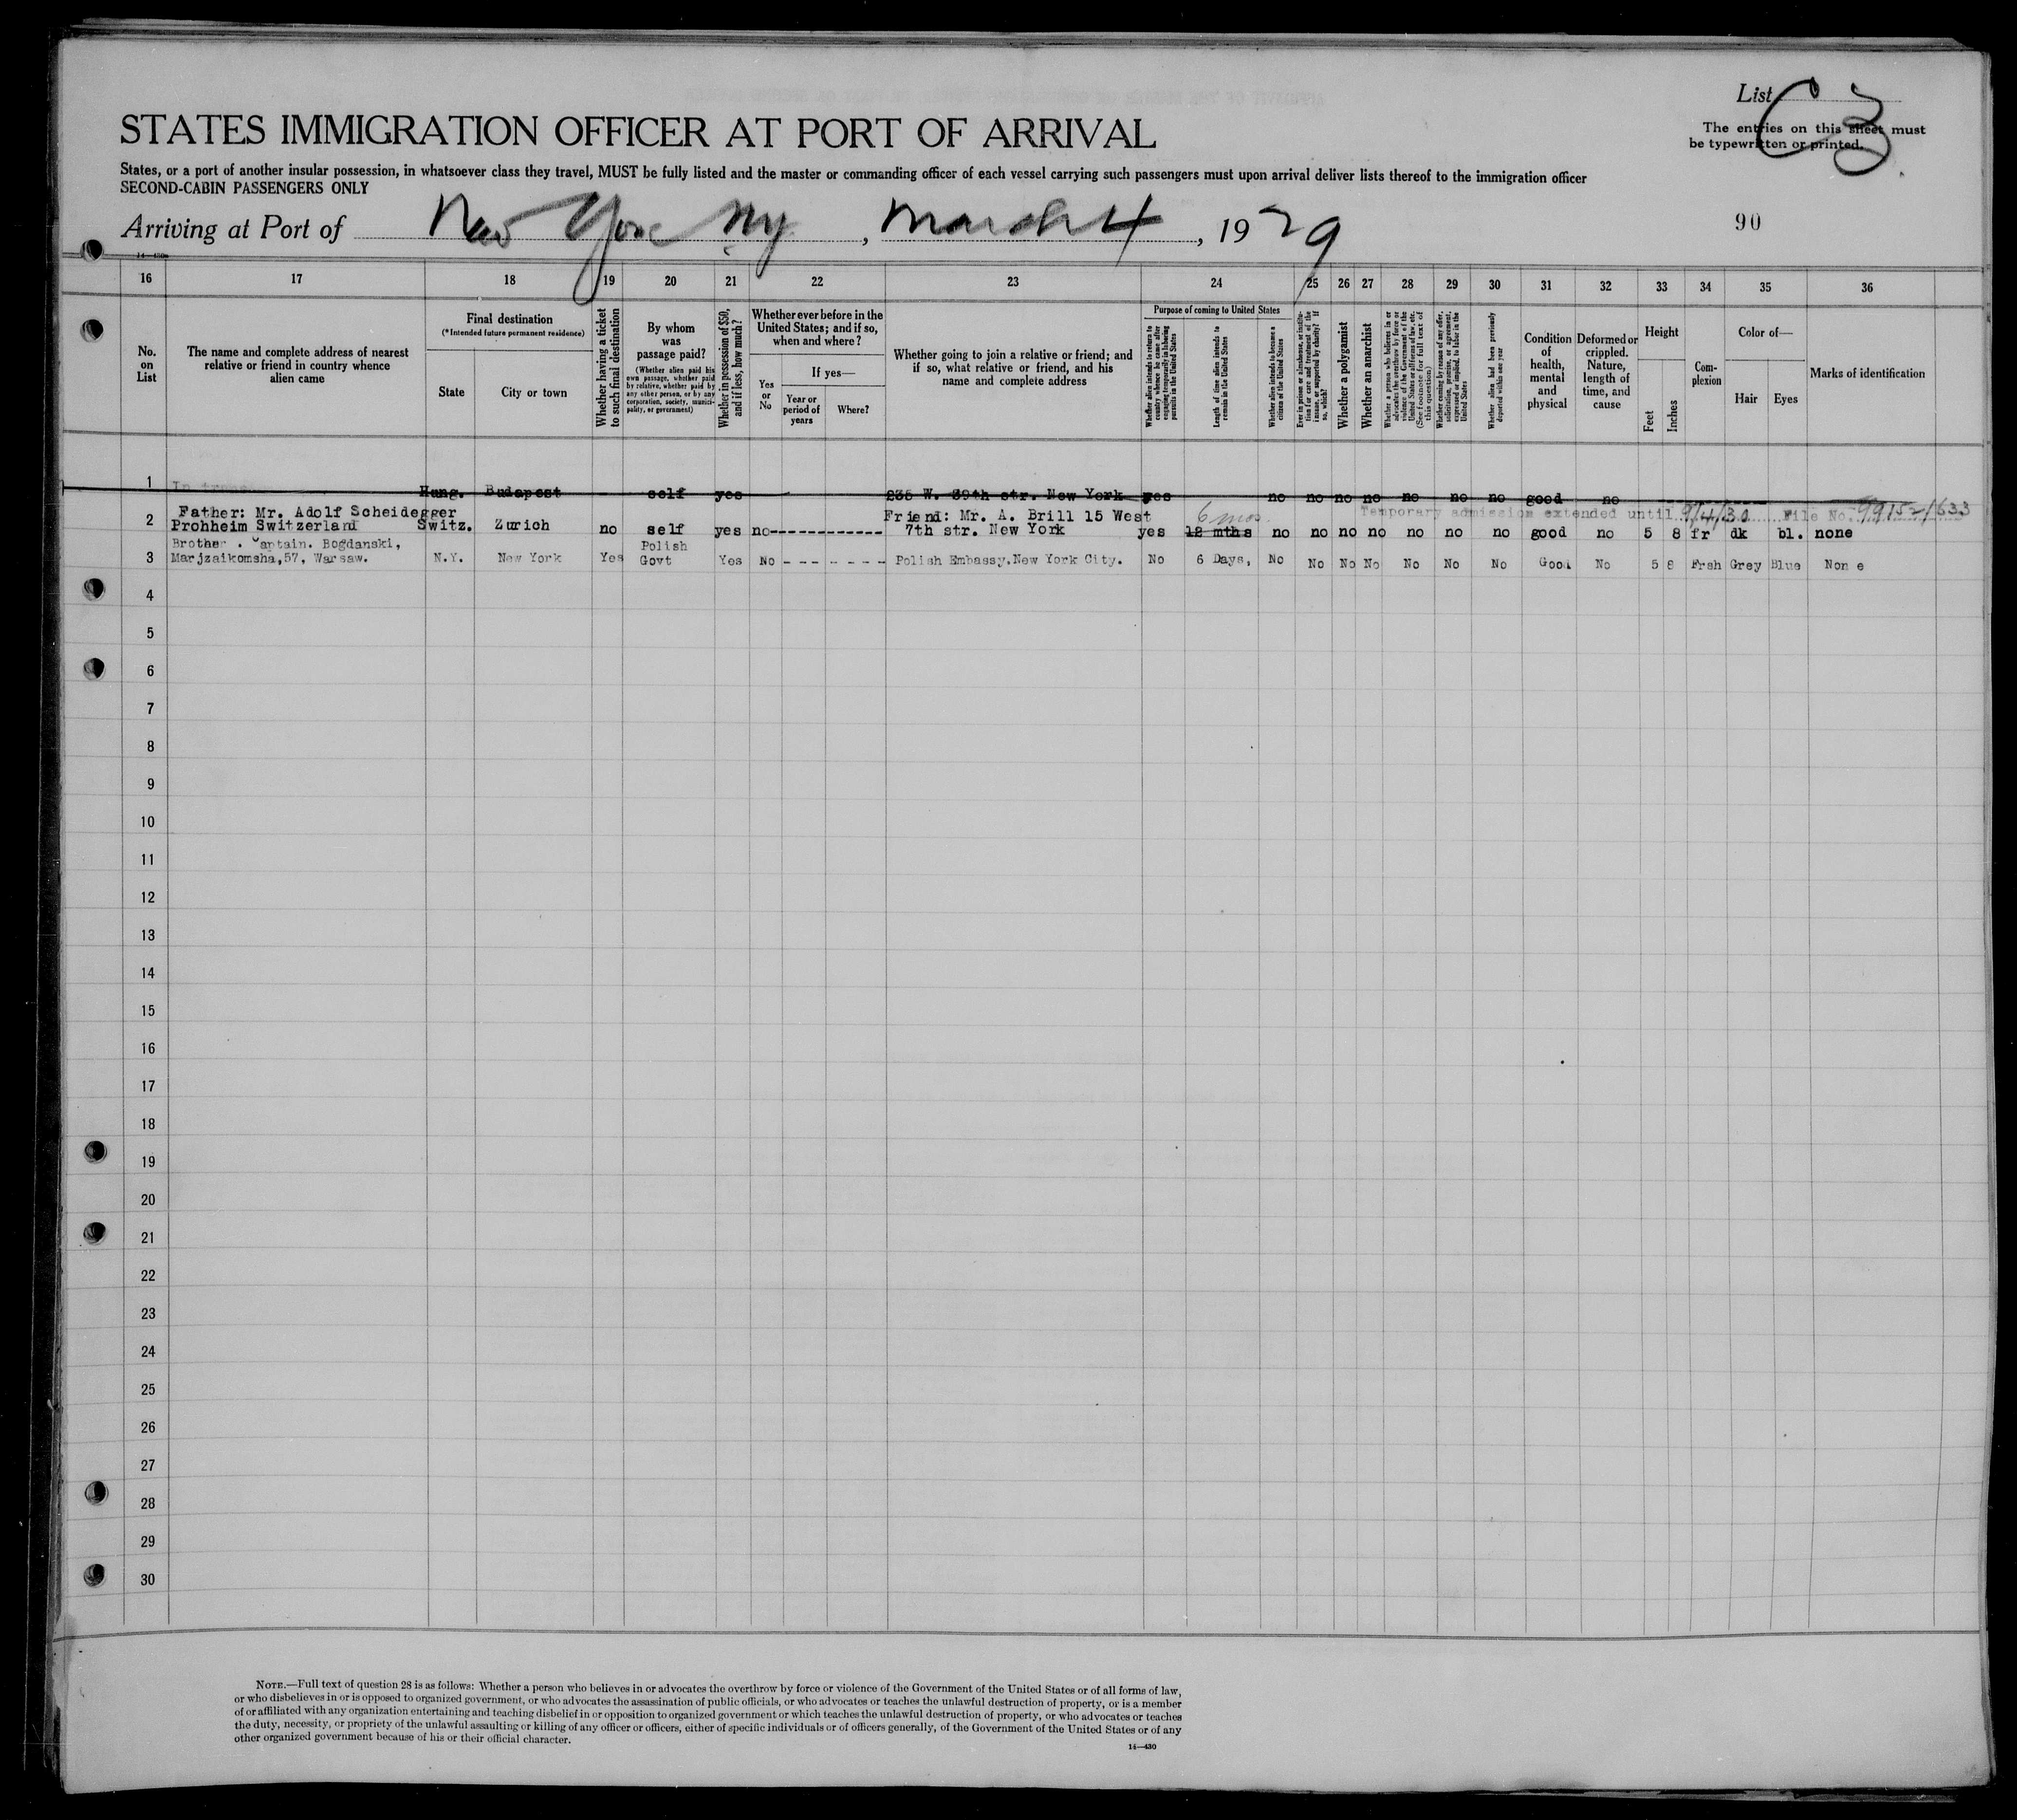 List C 3
The entries on this sheet must
be typewritten or printed.
STATES IMMIGRATION OFFICER AT PORT OF ARRIVAL
States, or a port of another insular possession, in whatsoever class they travel, MUST be fully listed and the master or commanding officer of each vessel carrying such passengers must upon arrival deliver lists thereof to the immigration officer
SECOND-CABIN PASSENGERS ONLY
Arriving at Port of New York Ny, March 4, 1929
90
14—430
16 17 18 19 20 21 22 23 24 25 26 27 28 29 30 31 32 33 34 35 36
No.
on
List
The name and complete address of nearest
relative or friend in country whence
alien came
Final destination
(*Intended future permanent residence)
State
City or town
Whether having a ticket
to such final destination
By whom
was
passage paid?
(Whether alien paid his
own passage, whether paid
by relative, whether paid by
any other person, or by any
corporation, society, munici-
pality, or government)
Whether in possession of $50,
and if less, how much?
Whether ever before in the
United States; and if so,
when and where?
Yes
or
No
If yes—
Year or
period of
years
Where?
Whether going to join a relative or friend; and
if so, what relative or friend, and his
name and complete address
Purpose of coming to United States
Whether alien intends to return to
country whence he came after
engaging temporarily in laboring
pursuits in the United States
Length of time alien intends to
remain in the United States
Whether alien intends to become a
citizen of the United States
Ever in prison or almshouse, or institu-
tion for care and treatment of the
insane, or supported by charity? If
so, which?
Whether a polygamist
Whether an anarchist
Whether a person who believes in or
advocates the overthrow by force or
violence of the Government of the
United States or all forms of law, etc.
(See footnote for full text of
this question)
Whether coming by reason of any offer,
solicitation, promise, or agreement,
expressed or implied, to labor in the
United States
Whether alien had been previously
deported within one year
Condition
of
health,
mental
and
physical
Deformed or
crippled.
Nature,
length of
time, and
cause
Height
Feet
Inches
Com-
plexion
Color of—
Hair
Eyes
Marks of identification
1 In trans Hung. Budapest self yes 235 W. 39th str. New York yes no no no no no no no good no
Father: Mr. Adolf Scheidegger Friend: Mr. A. Brill 15 West 6 mos. Temporary admission extended until 9/4/30 File No. 99152/633
2 Prohheim Switzerland Switz. Zurich no self yes no------------ 7th str. New York yes 12 mths no no no no no no no good no 5 8 fr dk bl. none
Brother . Captain. Bogdanski, Polish
3 Marjzaikomsha,57, Warsaw. N.Y. New York Yes Govt Yes No - - - - - - - Polish Embassy,New York City. No 6 Days, No No No No No No No Good No 5 8 Frsh Grey Blue None
4
5
6
7
8
9
10
11
12
13
14
15
16
17
18
19
20
21
22
23
24
25
26
27
28
29
30
NOTE.—Full text of question 28 is as follows: Whether a person who believes in or advocates the overthrow by force or violence of the Government of the United States or of all forms of law,
or who disbelieves in or is opposed to organized government, or who advocates the assassination of public officials, or who advocates or teaches the unlawful destruction of property, or is a member
of or affiliated with any organization entertaining and teaching disbelief in or opposition to organized government or which teaches the unlawful destruction of property, or who advocates or teaches
the duty, necessity, or propriety of the unlawful assaulting or killing of any officer or officers, either of specific individuals or of officers generally, of the Government of the United States or of any
other organized government because of his or their official character.
14—430